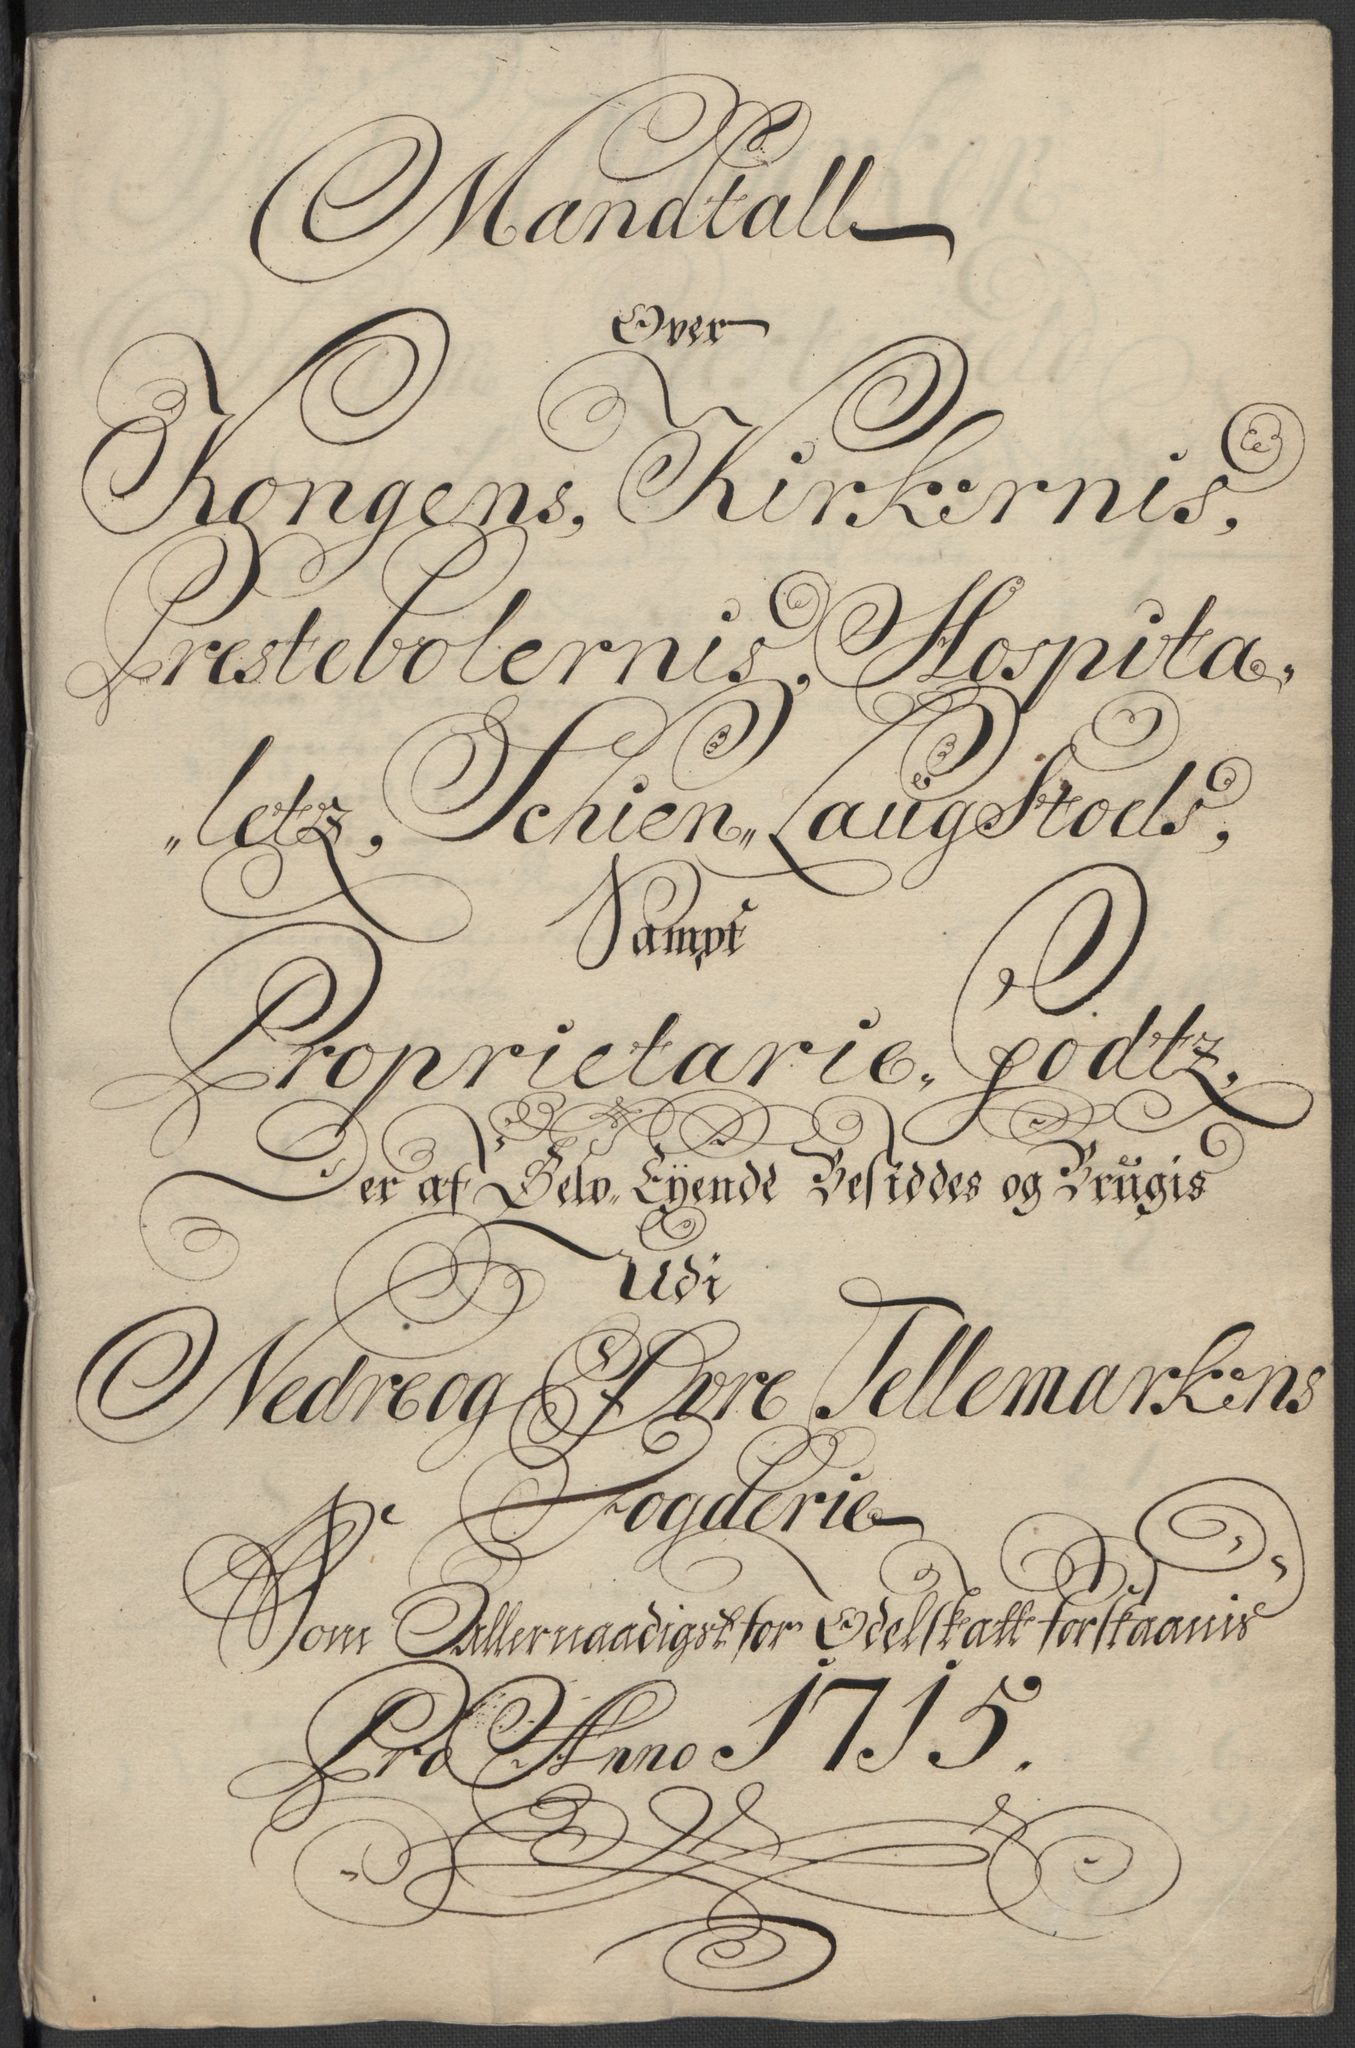 Mandtall
Over
Kongens, Kirkernis,
Prestebolernis, Hospita„
„letz, Schien„ Laŭgstoels,
Sampt
Proprietarie„ godtz,
Der af Selv„ Eÿende Besiddes og Brŭgis
Udi
Nedre og Øvre Tellemarkens
Fogderie
Som Allernaadigst for Odelskatt forskaanis
Pro Anno 1715.